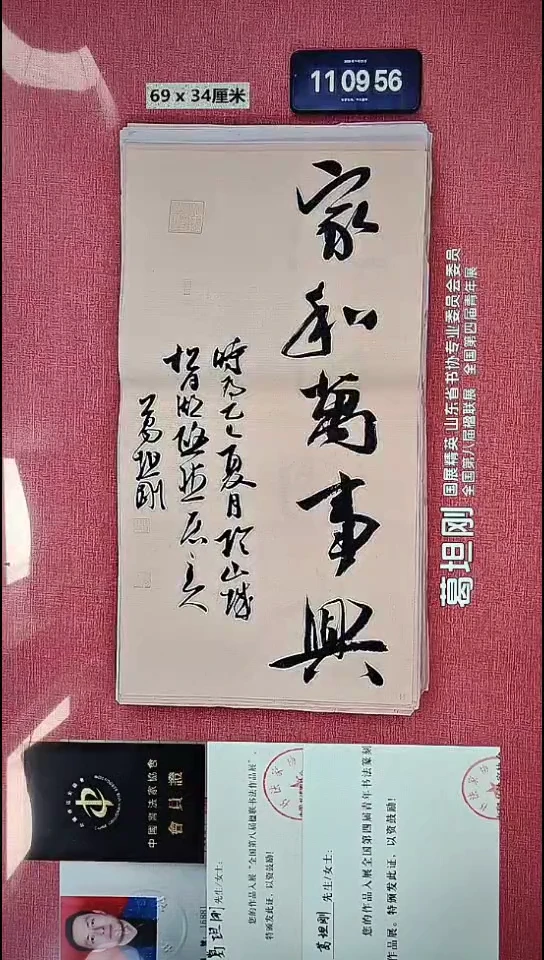 69 x 34厘米
11 09 56
家和萬事興
時爲乙巳夏月於山城
葛坦剛
葛坦刚
国展精英 山东省书协专业委员会委员
全国第八届楹联展 全国第四届青年展
中國書法家協會
會員證
葛坦刚 先生/女士:
您的作品入展“全国第八届楹联书法作品展”。
特颁发此证，以资鼓励！
葛坦刚 先生/女士:
您的作品入展全国第四届青年书法篆刻
作品展。特颁发此证，以资鼓励！